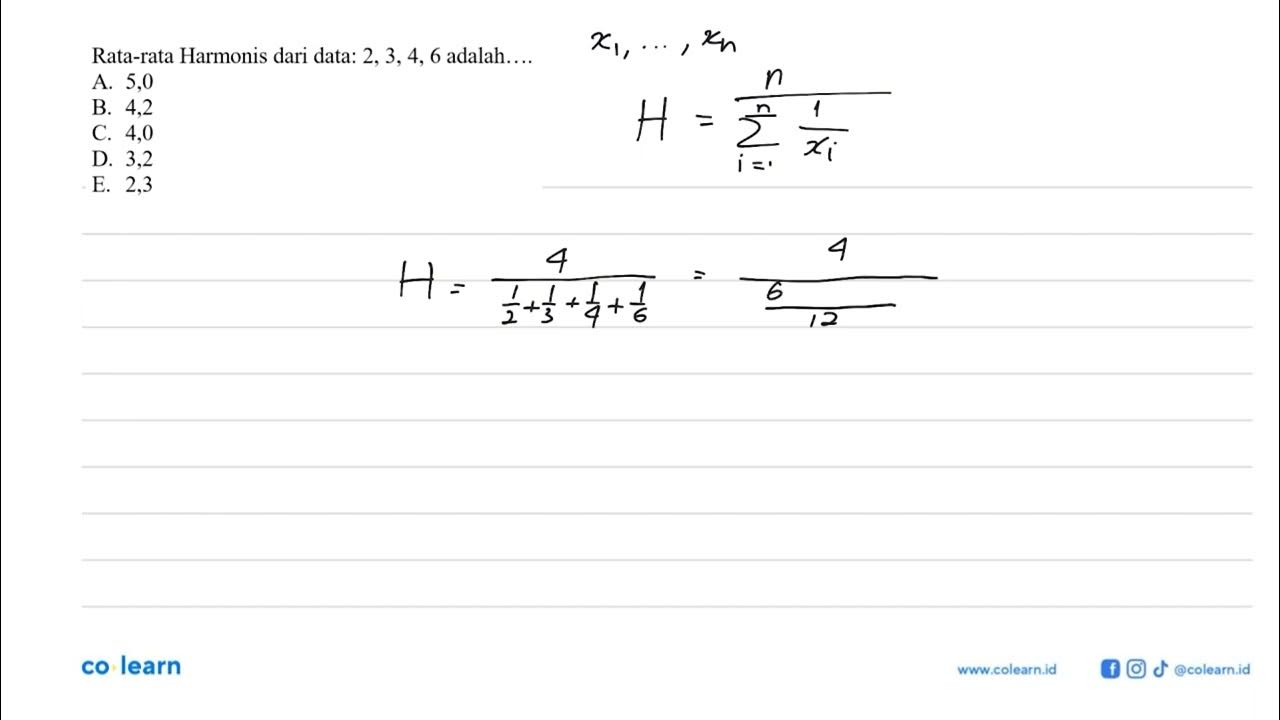 Rata-rata Harmonis dari data: 2, 3, 4, 6 adalah….
A. 5,0
B. 4,2
C. 4,0
D. 3,2
E. 2,3
x₁, ..., xₙ
H = n / (∑ᵢ₌₁ⁿ 1/xᵢ)
H = 4 / (1/2 + 1/3 + 1/4 + 1/6) = 4 / (6 / 12)
co·learn
www.colearn.id @colearn.id